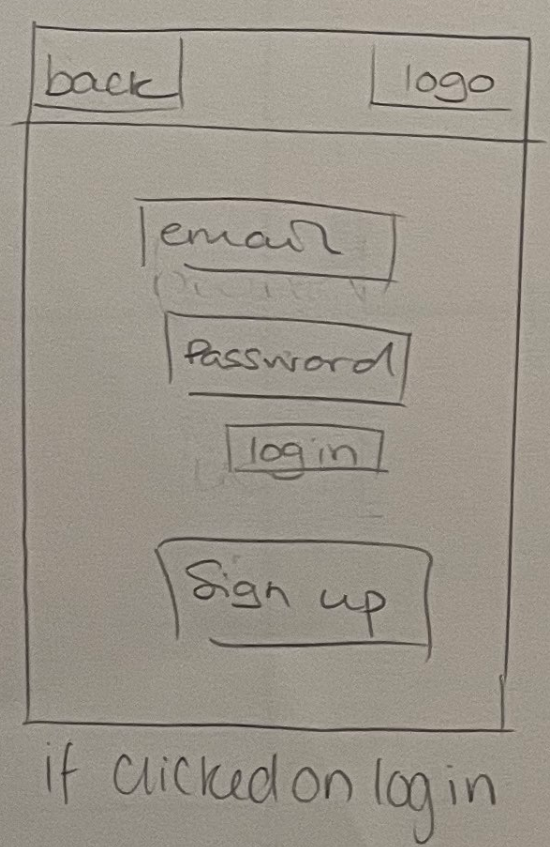 back
logo
email
Password
log in
Sign up
if clicked on log in